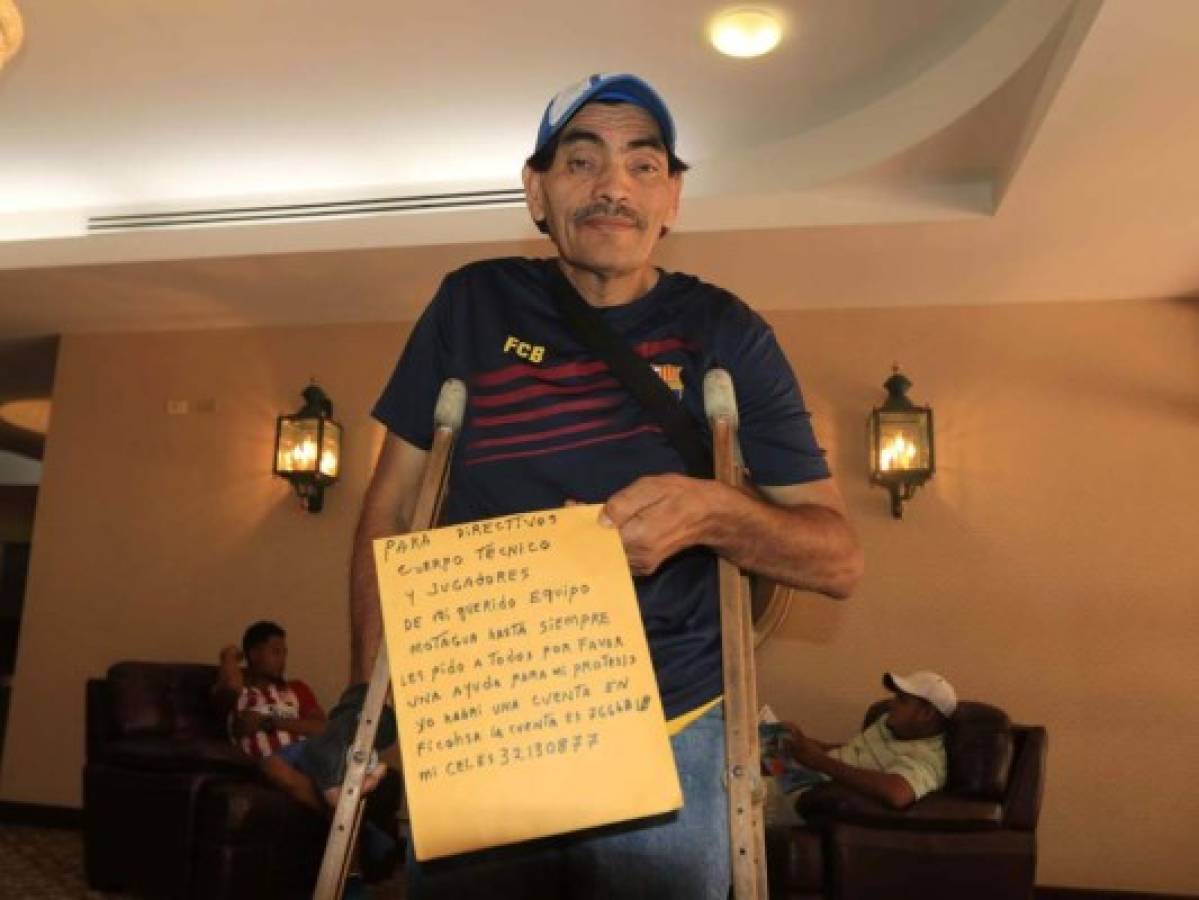 FCB
PARA DIRECTIVOS
CUERPO TÉCNICO
Y JUGADORES
DE Mi QUERIDO EQUIPO
MOTAGUA HASTA SIEMPRE
LES PIDO A TODOS POR FAVOR
UNA AYUDA PARA MI PROTESIS
YO HABRI UNA CUENTA EN
FICOHSA LA CUENTA ES
MI CEL ES 32130877